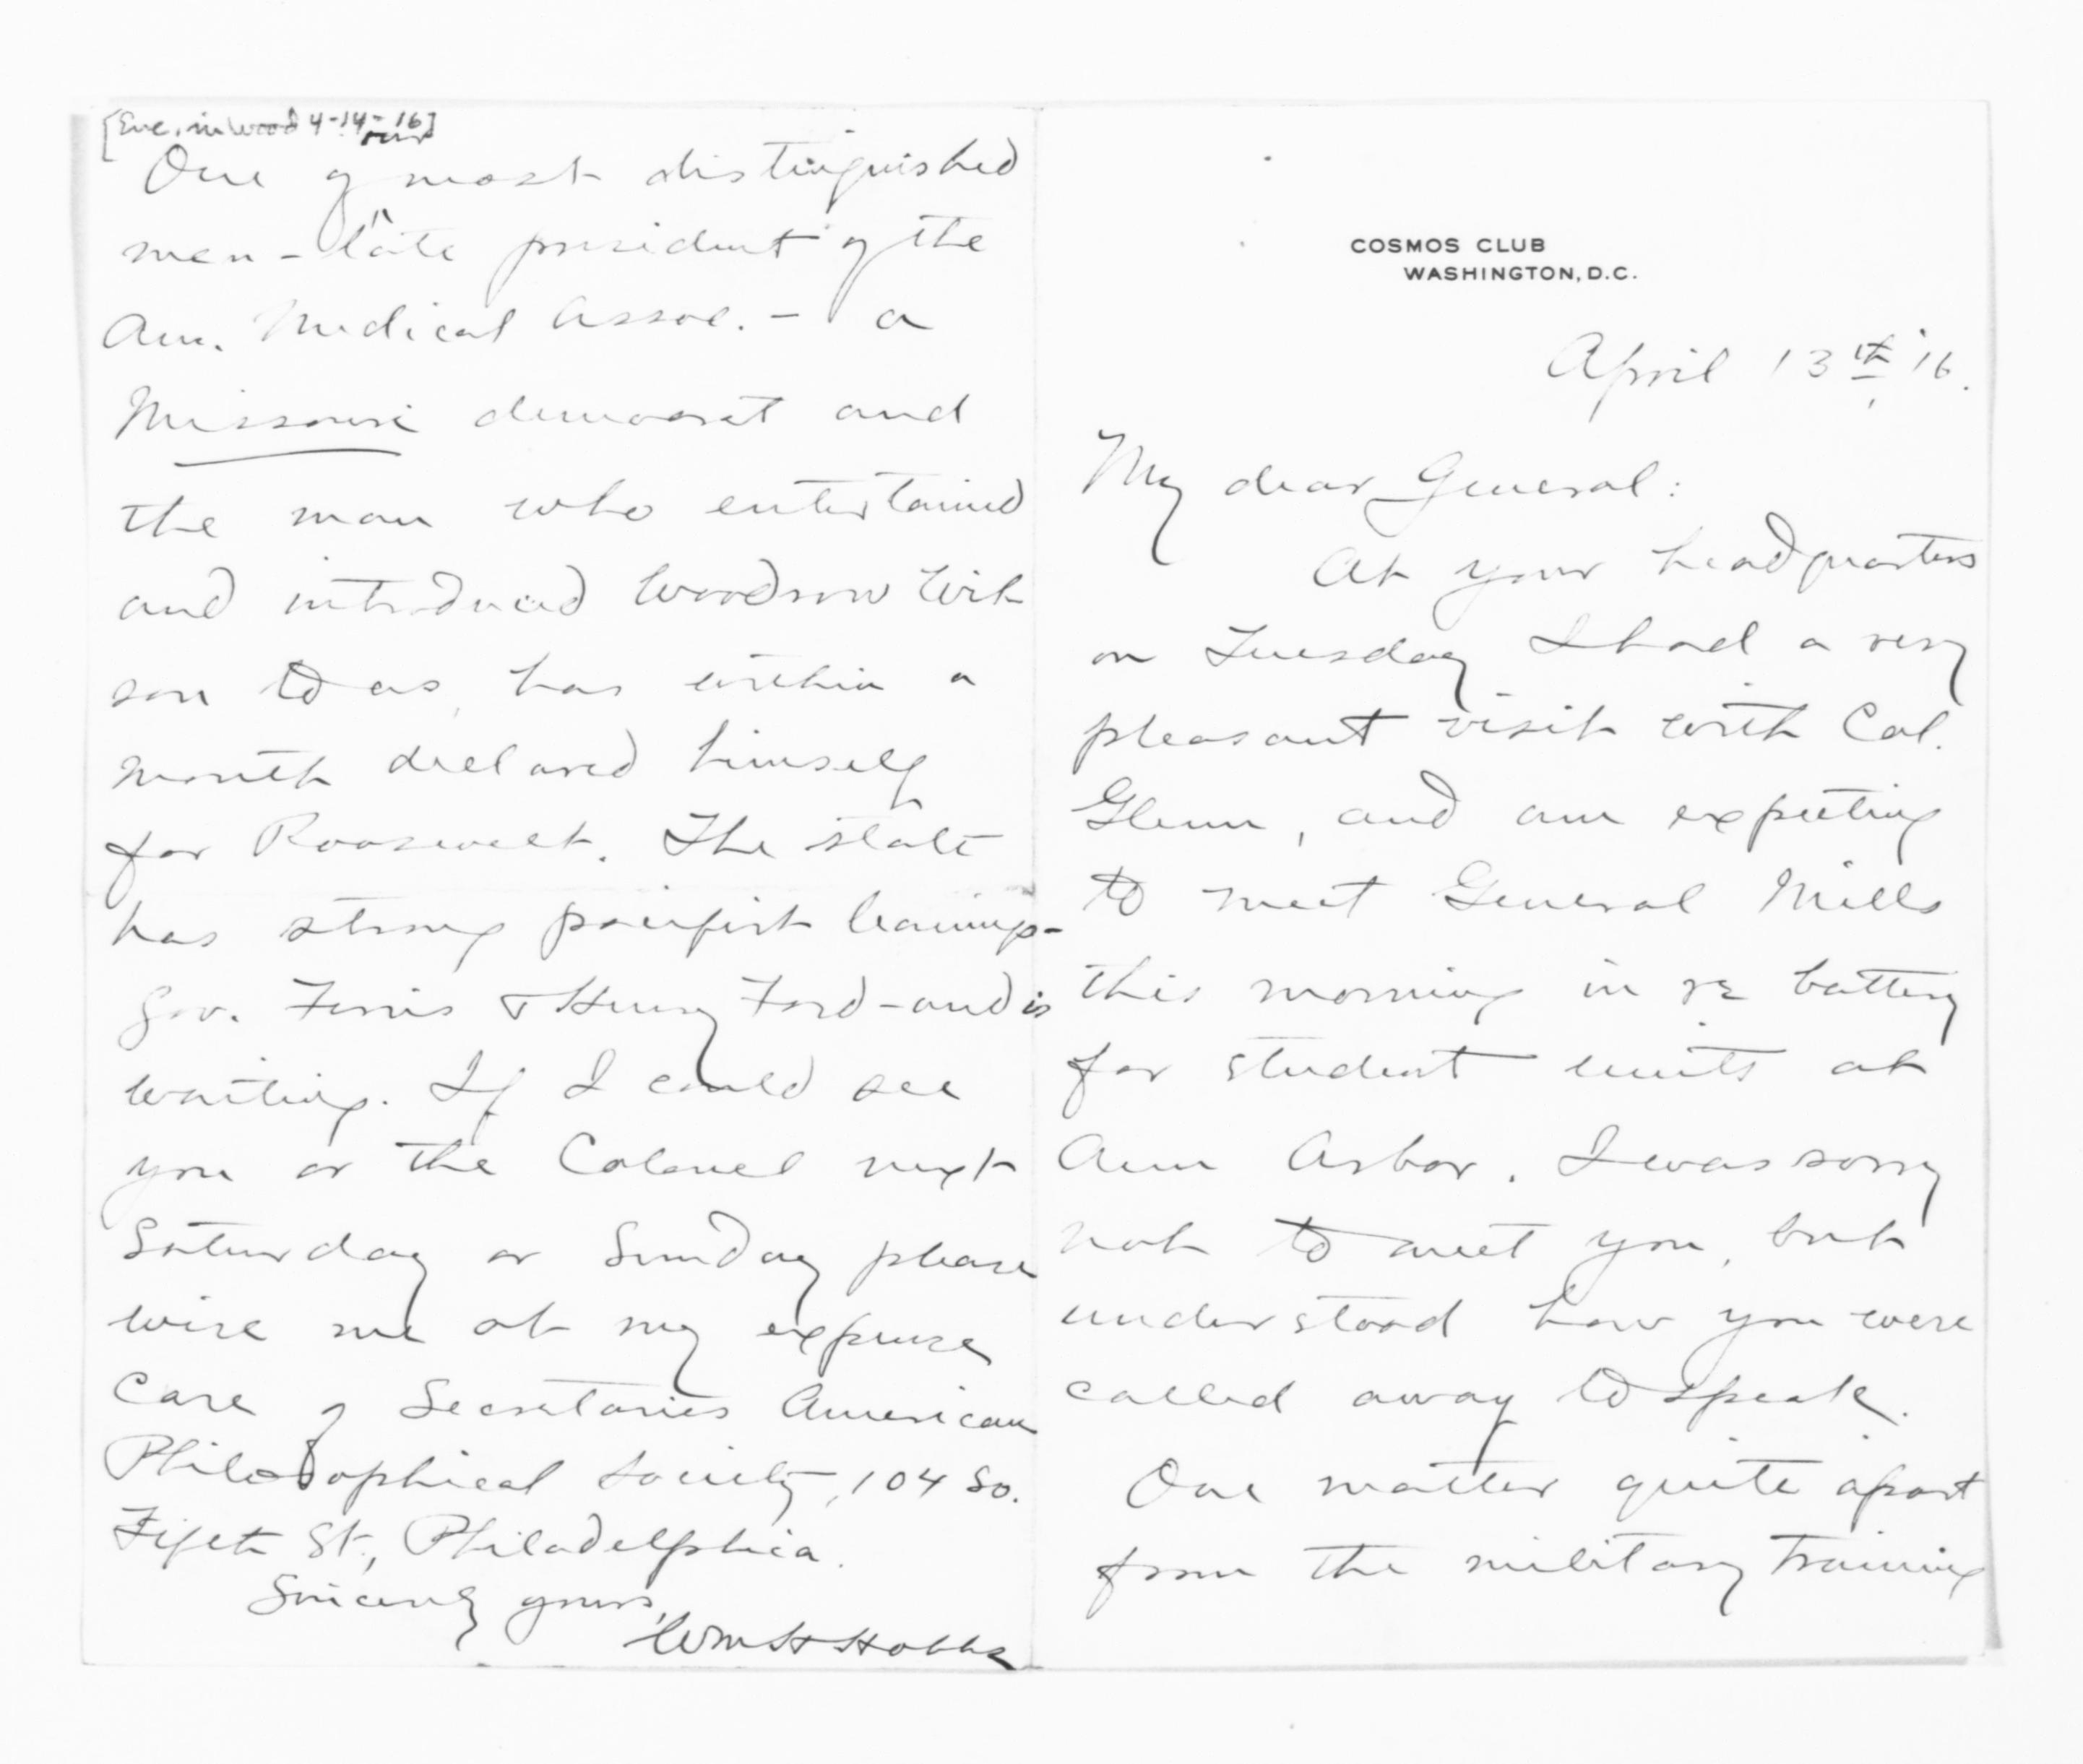 COSMOS CLUB
WASHINGTON, D.C.
April 13th, '16.
My dear General:
At your headquarters
on Tuesday I had a very
pleasant visit with Col.
Glenn, and am expecting
to meet General Mills
this morning in re battery
for student units at
Ann Arbor. I was sorry
not to meet you, but
understood how you were
called away to speak.
One matter quite apart
from the military training
[Enc. in Wood 4-14-16]
our
One of most distinguished
men - late president of the
Am. Medical Assoc. - a
Missouri democrat and
the man who entertained
and introduced Woodrow Wil-
son to us, has within a
month declared himself
for Roosevelt. The state
has strong pacifist leanings-
Gov. Ferris & Henry Ford - and is
waiting. If I could see
you or the Colonel next
Saturday or Sunday please
wire me at my expense
Care of Secretaries American
Philosophical Society, 104 So.
Fifth St., Philadelphia.
Sincerely yours,
Wm H Hobbs